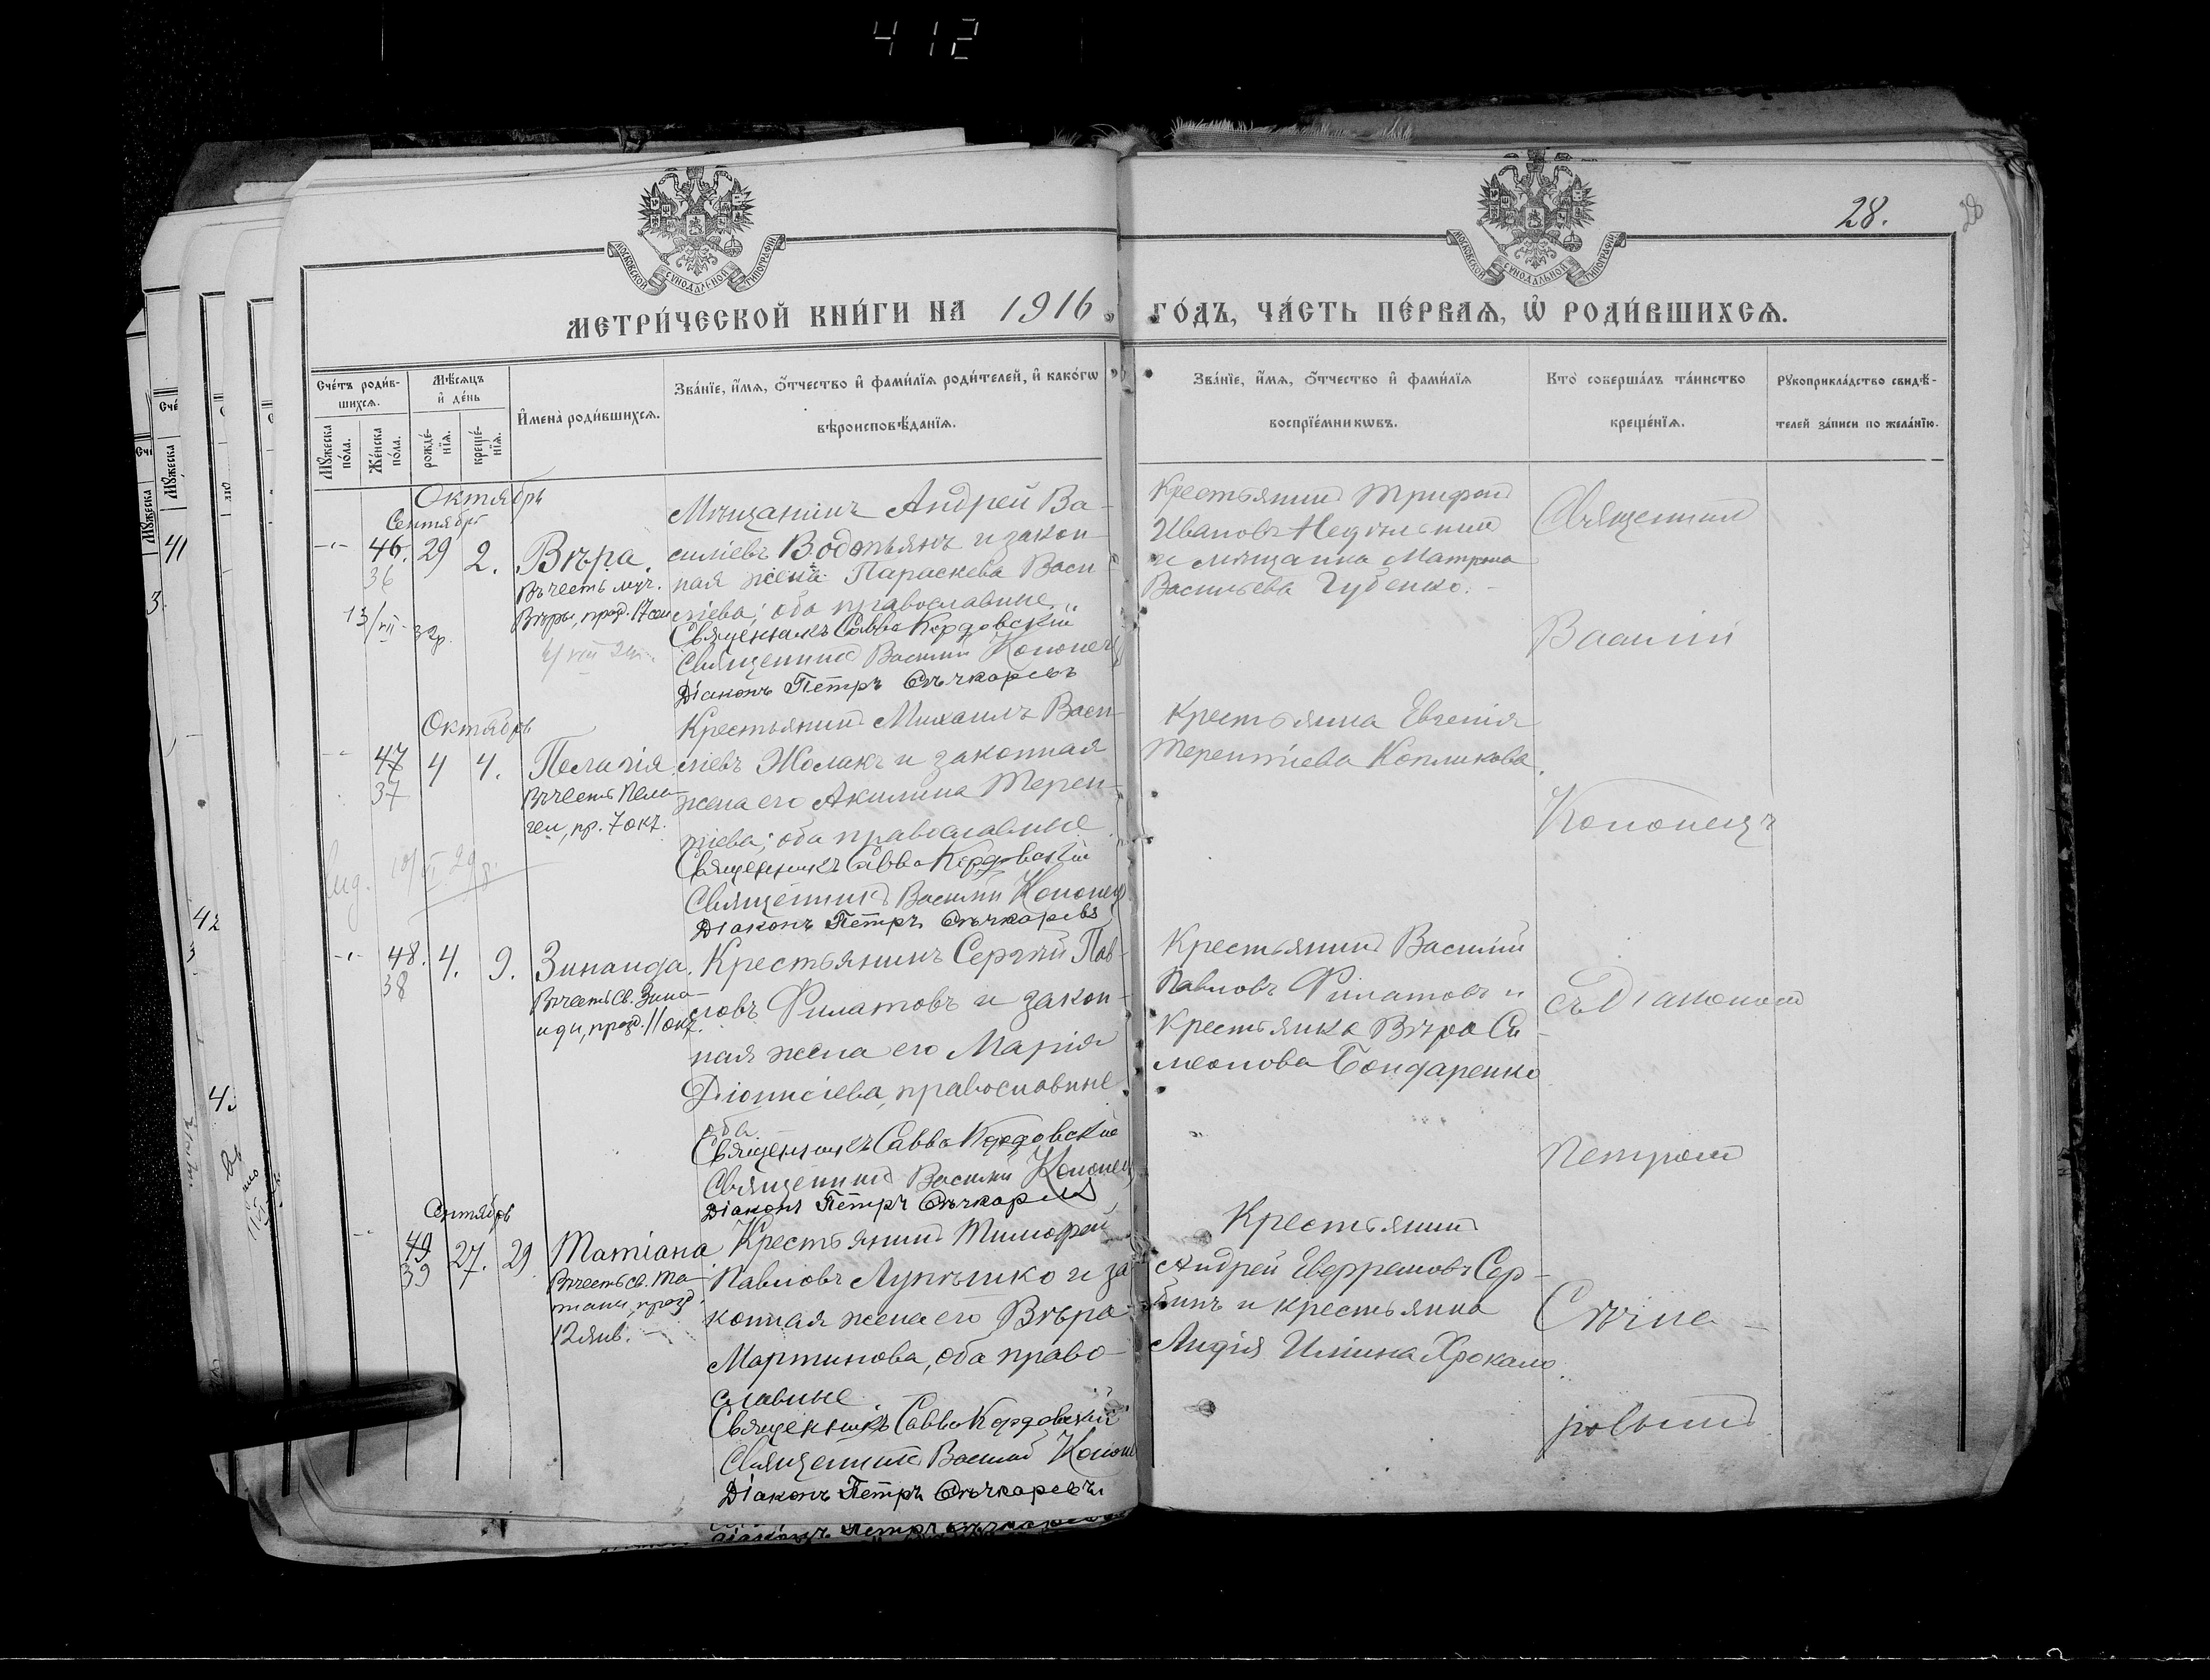 412
28.
28
МОСКОВСКОЙ СѴНОДАЛЬНОЙ ТИПОГРАФІИ
МОСКОВСКОЙ СѴНОДАЛЬНОЙ ТИПОГРАФІИ
МЕТРИ́ЧЕСКОЙ КНИ́ГИ НА 1916
ГО́ДЪ, ЧА́СТЬ ПЕ́РВАѦ, Ѡ҆ РОДИ́ВШИХСѦ.
Сче́тъ роди́в-
шихсѧ.
Мѣ́сѧцъ
и҆ де́нь
Мꙋ́жеска
по́ла.
Же́нска
по́ла.
рожде́-
нїѧ.
креще́-
нїѧ.
И҆мена̀ роди́вшихсѧ.
Зва́нїе, и҆́мѧ, ѻ҆́тчество и҆ фами́лїѧ роди́телей, и҆ како́гѡ
вѣроисповѣ́данїѧ.
Зва́нїе, и҆́мѧ, ѻ҆́тчество и҆ фами́лїѧ
воспрїе́мникѡвъ.
Кто̀ соверша́лъ та́инство
креще́нїѧ.
Рꙋкоприкла́дство свидѣ́-
телей за́писи по жела́нїю.
Октябрь
Сентябрь
46. 29 2. Вѣра.
36
Въ честь муч.
Вѣры, празд. 17 сен
Мѣщанинъ Андрей Ва-
силіевъ Водопьянъ и закон-
ная жена Параскева Васи-
ліева; оба православные.
Священникъ Савва Кордовскій
Священникъ Василій Кононец
Діаконъ Петръ Сѣчкаревъ
Крестьянинъ Трифон
Ивановъ Недѣльный
и мѣщанка Матрона
Васильева Губенко.
Священник
Василій
Октябрь
47 4 4. Пелагія
37
Въ честь Пела-
геи, пр. 7 окт.
Крестьянинъ Михаилъ Васи-
ліевъ Жолакъ и законная
жена его Акилина Терен-
тіева; оба православные
Священникъ Савва Кордовскій
Священникъ Василій Кононец
Діаконъ Петръ Сѣчкаревъ
Крестьянка Евгенія
Терентіева Копликова.
Кононецъ
48. 4. 9. Зинаида.
38
Въ честь св. Зина-
иды, празд. 11 окт.
Крестьянинъ Сергѣй Пав-
ловъ Филатовъ и закон-
ная жена его Марія
Діонисіева, православные
оба
Священникъ Савва Кордовскій
Священникъ Василій Кононец
Діаконъ Петръ Сѣчкаревъ
Крестьянинъ Василій
Павловъ Филатовъ и
Крестьянка Вѣра Си-
меонова Бондаренко
съ Діакономъ
Петромъ
Сентябрь
49 27. 29 Татіана
39
Въ честь св. Та-
тіаны, празд.
12 янв.
Крестьянинъ Тимофей
Павловъ Лупѣшко и за-
конная жена его Вѣра
Мартинова, оба право-
славные
Священникъ Савва Кордовскій
Священник Василій Кононе
Діаконъ Петръ Сѣчкаревъ
Крестьянинъ
Андрей Евфремовъ Сер-
бинъ и крестьянка
Лидія Ильина Хрокало.
Сѣчка-
ревымъ
Діаконъ Петръ Сѣчкаревъ